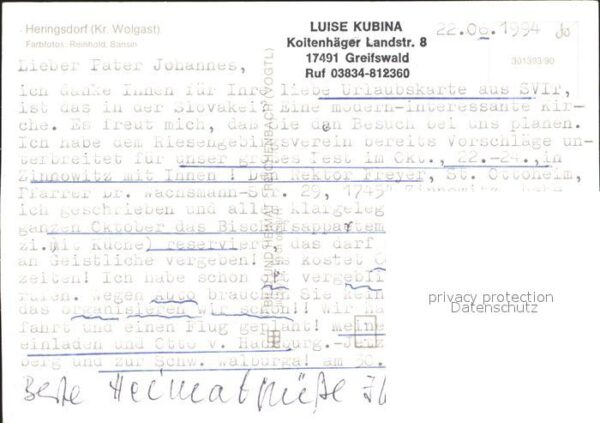 Henngsdorf (Kr. Wolgast)
Farbfotos: Reinhold, Bansin
LUISE KUBINA
Koitenhäger Landstr. 8
17491 Greifswald
Ruf 03834-812360
22.06.1994
301393/90
BILD UND HEIMAT REICHENBACH (VOGTL)
Lieber Pater Johannes,
ich danke Ihnen für Ihre liebe Urlaubskarte aus SVIT,
ist das in der Slovakei? Eine modern-interessante Kir-
che. Es freut mich, daß Sie den Besuch bei uns planen.
Ich habe dem Riesengebirgsverein bereits Vorschläge un-
terbreitet für unser großes Fest im Okt., 22.-24.,in
Zinnowitz mit Ihnen ! Dem Rektor Freyer, St. Ottoheim,
Pfarrer Dr. Wachsmann-Str. 29, 17459 Zinnowitz, habe
ich geschrieben und alles klargeleg
ganzen Oktober das Bischofsappartem
zi.mit Küche) reserviert, das darf
an Geistliche vergeben! Es kostet
zeiten! Ich habe schon mit
rufen. Wegen brauchen Sie kein
das organisieren wir schon!! Wir
fahrt und einen Flug geplant! meine
einladen und Otto v. Habsburg.-Jetz
berg und zur Schw. Walburga! am 30.
Beste Heimatgrüße Ih
privacy protection
Datenschutz